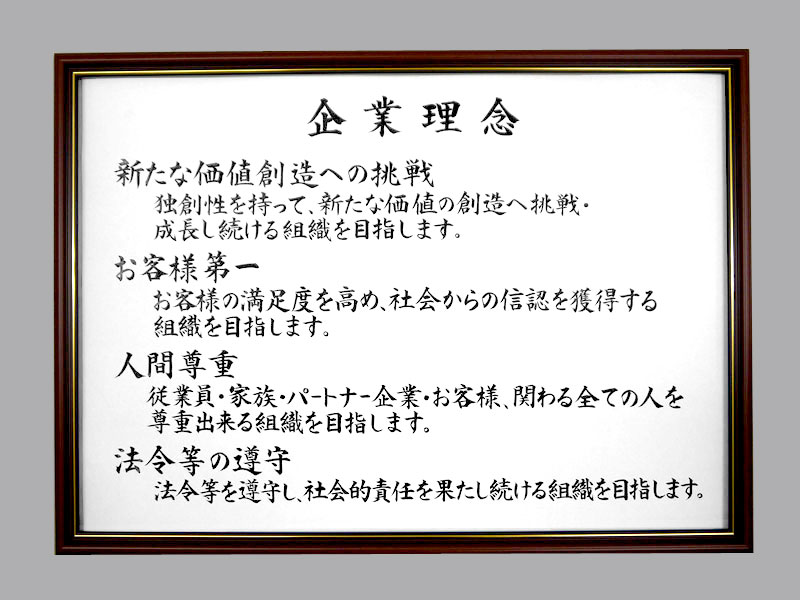 企業理念
新たな価値創造への挑戦
独創性を持って、新たな価値の創造へ挑戦・
成長し続ける組織を目指します。
お客様第一
お客様の満足度を高め、社会からの信認を獲得する
組織を目指します。
人間尊重
従業員・家族・パートナー企業・お客様、関わる全ての人を
尊重出来る組織を目指します。
法令等の遵守
法令等を遵守し、社会的責任を果たし続ける組織を目指します。